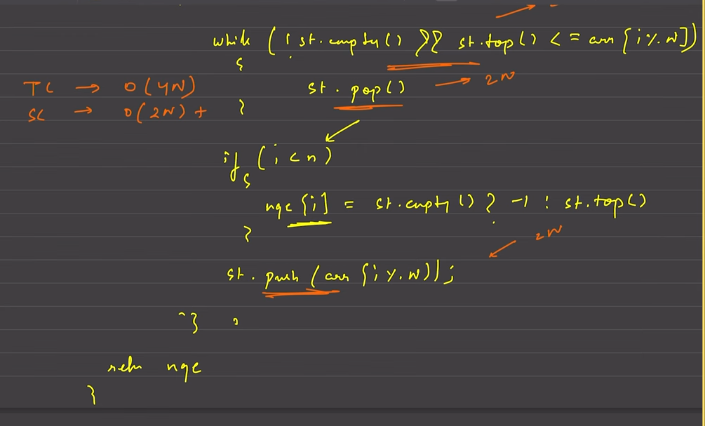 while (!st.empty() && st.top() <= arr[i%n])
{
TC → O(4N)
st.pop() → 2N
SC → O(2N) +
}
if (i<n)
{
nge[i] = st.empty() ? -1 : st.top()
}
2N
st.push(arr[i%n]);
}
retn nge
}